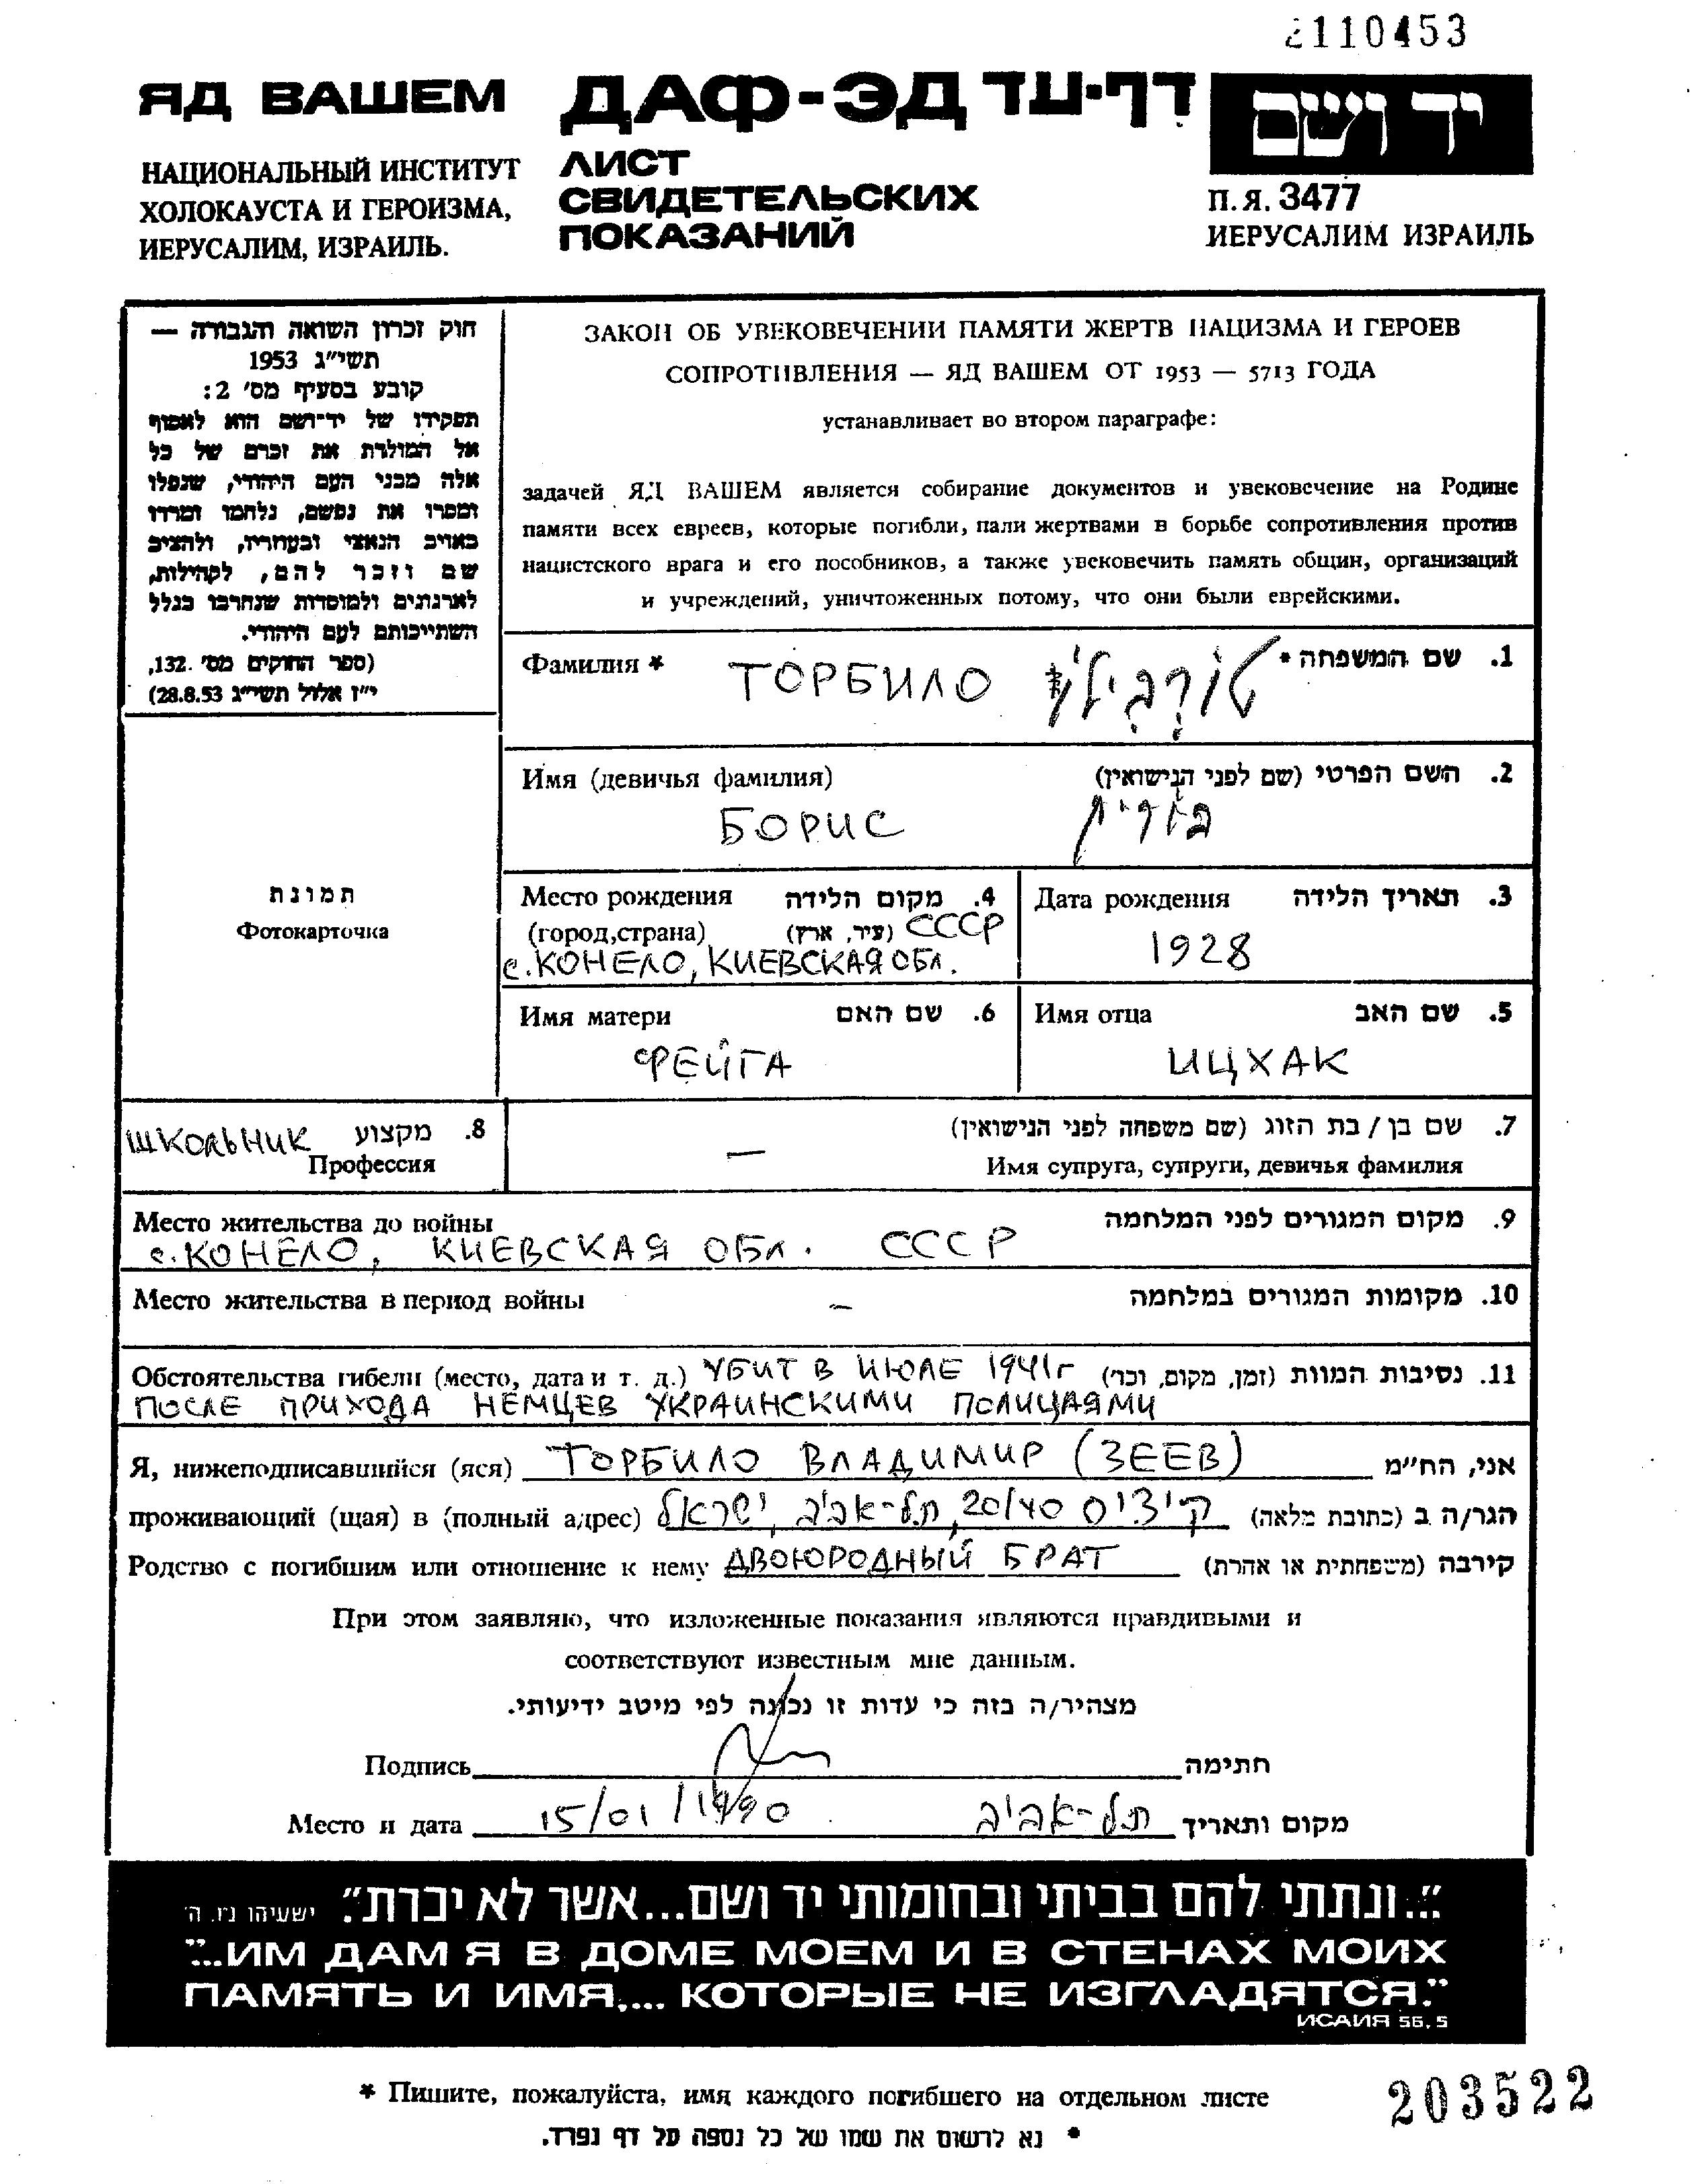 2110453
ЯД ВАШЕМ
ДАФ-ЭД דף-עד
יד ושם
НАЦИОНАЛЬНЫЙ ИНСТИТУТ
ХОЛОКАУСТА И ГЕРОИЗМА,
ИЕРУСАЛИМ, ИЗРАИЛЬ.
ЛИСТ
СВИДЕТЕЛЬСКИХ
ПОКАЗАНИЙ
П.Я. 3477
ИЕРУСАЛИМ ИЗРАИЛЬ
חוק זכרון השואה והגבורה —
תשי״ג 1953
קובע בסעיף מס׳ 2:
תפקידו של יד־ושם הוא לאסוף
אל המולדת את זכרם של כל
אלה מבני העם היהודי, שנפלו
ומסרו את נפשם, נלחמו ומרדו
באויב הנאצי ובעוזריו, ולהציב
שם וזכר להם, לקהילות,
לארגונים ולמוסדות שנחרבו בגלל
השתייכותם לעם היהודי.
(ספר החוקים מס׳ 132,
י״ז אלול תשי״ג 28.8.53)
ЗАКОН ОБ УВЕКОВЕЧЕНИИ ПАМЯТИ ЖЕРТВ НАЦИЗМА И ГЕРОЕВ
СОПРОТИВЛЕНИЯ — ЯД ВАШЕМ ОТ 1953 — 5713 ГОДА
устанавливает во втором параграфе:
задачей ЯД ВАШЕМ является собирание документов и увековечение на Родине
памяти всех евреев, которые погибли, пали жертвами в борьбе сопротивления против
нацистского врага и его пособников, а также увековечить память общин, организаций
и учреждений, уничтоженных потому, что они были еврейскими.
Фамилия * ТОРБИЛО טורבילו 1. שם המשפחה *
Имя (девичья фамилия) 2. השם הפרטי (שם לפני הנישואין)
БОРИС בוריס
Место рождения 4. מקום הלידה
(город,страна) (עיר, ארץ) СССР
с.КОНЕЛО, КИЕВСКАЯ ОБЛ.
Дата рождения 3. תאריך הלידה
1928
תמונת
Фотокарточка
Имя матери 6. שם האם
ФЕЙГА
Имя отца 5. שם האב
ИЦХАК
ШКОЛЬНИК 8. מקצוע
Профессия
7. שם בן / בת הזוג (שם משפחה לפני הנישואין)
—
Имя супруга, супруги, девичья фамилия
Место жительства до войны 9. מקום המגורים לפני המלחמה
с.КОНЕЛО, КИЕВСКАЯ ОБЛ. СССР
Место жительства в период войны — 10. מקומות המגורים במלחמה
Обстоятельства гибели (место, дата и т. д.) УБИТ В ИЮЛЕ 1941г 11. נסיבות המוות (זמן, מקום, וכו׳)
ПОСЛЕ ПРИХОДА НЕМЦЕВ УКРАИНСКИМИ ПОЛИЦАЯМИ
Я, нижеподписавшийся (яся) ТОРБИЛО ВЛАДИМИР (ЗЕЕВ) אני, הח״מ
проживающий (щая) в (полный адрес) 20/40, תל-אביב, ישראל הגר/ה ב (כתובת מלאה)
Родство с погибшим или отношение к нему ДВОЮРОДНЫЙ БРАТ קירבה (משפחתית או אחרת)
При этом заявляю, что изложенные показания являются правдивыми и
соответствуют известным мне данным.
מצהיר/ה בזה כי עדות זו נכונה לפי מיטב ידיעותי.
Подпись חתימה
Место и дата 15/01/1990 תל-אביב מקום ותאריך
״...ונתתי להם בביתי ובחומותי יד ושם...אשר לא יכרת״. ישעיהו נ״ו. ה׳
"...ИМ ДАМ Я В ДОМЕ МОЕМ И В СТЕНАХ МОИХ
ПАМЯТЬ И ИМЯ,... КОТОРЫЕ НЕ ИЗГЛАДЯТСЯ."
ИСАИЯ 56, 5
* Пишите, пожалуйста, имя каждого погибшего на отдельном листе
* נא לרשום את שמו של כל נספה על דף נפרד.
203522